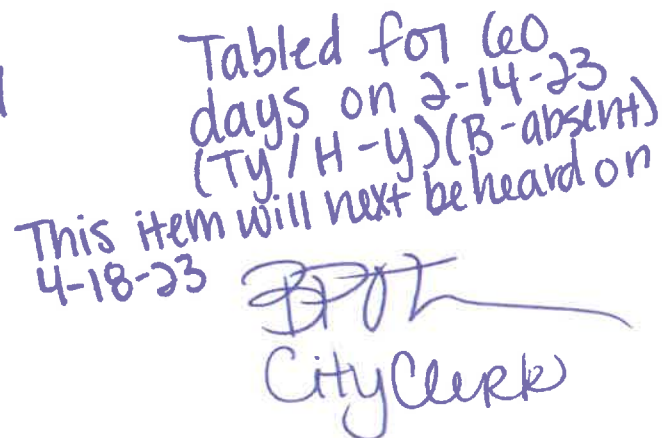 Tabled for 60
days on 2-14-23
(Ty/H-y)(B-absent)
This item will next be heard on
4-18-23
City Clerk